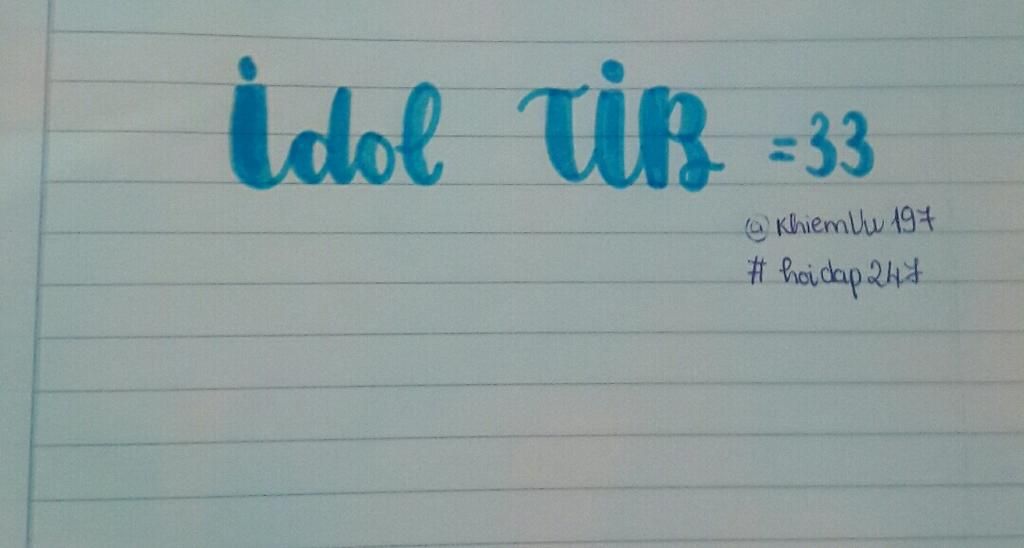 idol TiB =33
@KhiemVu197
# hoidap247